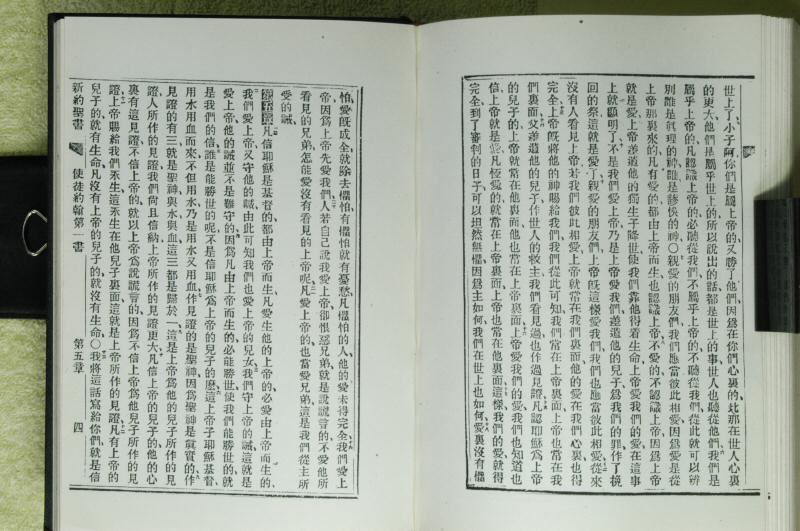 世上了小子阿你們是屬上帝的又勝了他們因爲在你們心裏的比那在世人心裏
的更大他們是屬乎世上的所以說出的話都是世上的事世人也聽從他們我們是
屬乎上帝的凡認識上帝的必聽從我們不屬乎上帝的不聽從我們從此就可以辨
別誰是眞理的神誰是謬悞的神○親愛的朋友們我們應當彼此相愛因爲愛是從
上帝那裏來的凡有愛的都由上帝而生也認識上帝不愛的不認識上帝因爲上帝
就是愛上帝差遣他的獨生子降世使我們靠他得着生命上帝愛我們的愛在這事
上就顯明了不是我們愛上帝乃是上帝愛我們差遣他的兒子爲我們的罪作了挽
回的祭這就是愛了親愛的朋友們上帝旣這樣愛我們我們也應當彼此相愛從來
沒有人看見上帝若我們彼此相愛上帝就常在我們裏面他的愛在我們心裏也得
完全上帝旣將他的神賜給我們我們從此可知我們常在上帝裏面上帝也常在我
們裏面父差遣他的兒子作世人的救主我們看見過也作過見證凡認耶穌爲上帝
的兒子的上帝就常在他裏面他也常在上帝裏面上帝愛我們的愛我們也知道也
信上帝就是愛凡恆愛的就常在上帝裏面上帝也常在他裏面這樣我們的愛就得
完全到了審判的日子可以坦然無懼因爲主如何我們在世上也如何愛裏沒有懼
怕愛旣成全就除去懼怕有懼怕就有憂愁凡懼怕的人他的愛未得完全我們愛上
帝因爲上帝先愛我們人若自己說我愛上帝卻恨惡兄弟就是說謊言的不愛他所
看見的兄弟怎能愛沒有看見的上帝呢凡愛上帝的也當愛兄弟這是我們從主所
受的誡
第五章凡信耶穌是基督的都由上帝而生凡愛生他的上帝的必愛由上帝而生的
我們愛上帝又守他的誡由此可知我們也愛上帝的兒女我們守上帝的誡這就是
愛上帝他的誡並不是難守的因爲凡由上帝而生的必能勝世使我們能勝世的就
是我們的信誰是能勝世的呢不是信耶穌爲上帝的兒子的麽這上帝子耶穌基督
用水用血而來不但用水乃是用水又用血作見證的是聖神因爲聖神是眞實的作
見證的有三就是聖神與水與血這三都是歸於一這是上帝爲他的兒子所作的見
證人所作的見證我們尙且信納上帝所作的見證更大凡信上帝的兒子的他的心
裏有這見證不信上帝的就以上帝爲說謊言的因爲不信上帝爲他兒子所作的見
證上帝賜給我們永生這永生在他兒子裏面這就是上帝所作的見證有上帝的
兒子的就有生命凡沒有上帝的兒子的就沒有生命○我將這話寫給你們就是信
新約聖書 使徒約翰第一書 第五章 四